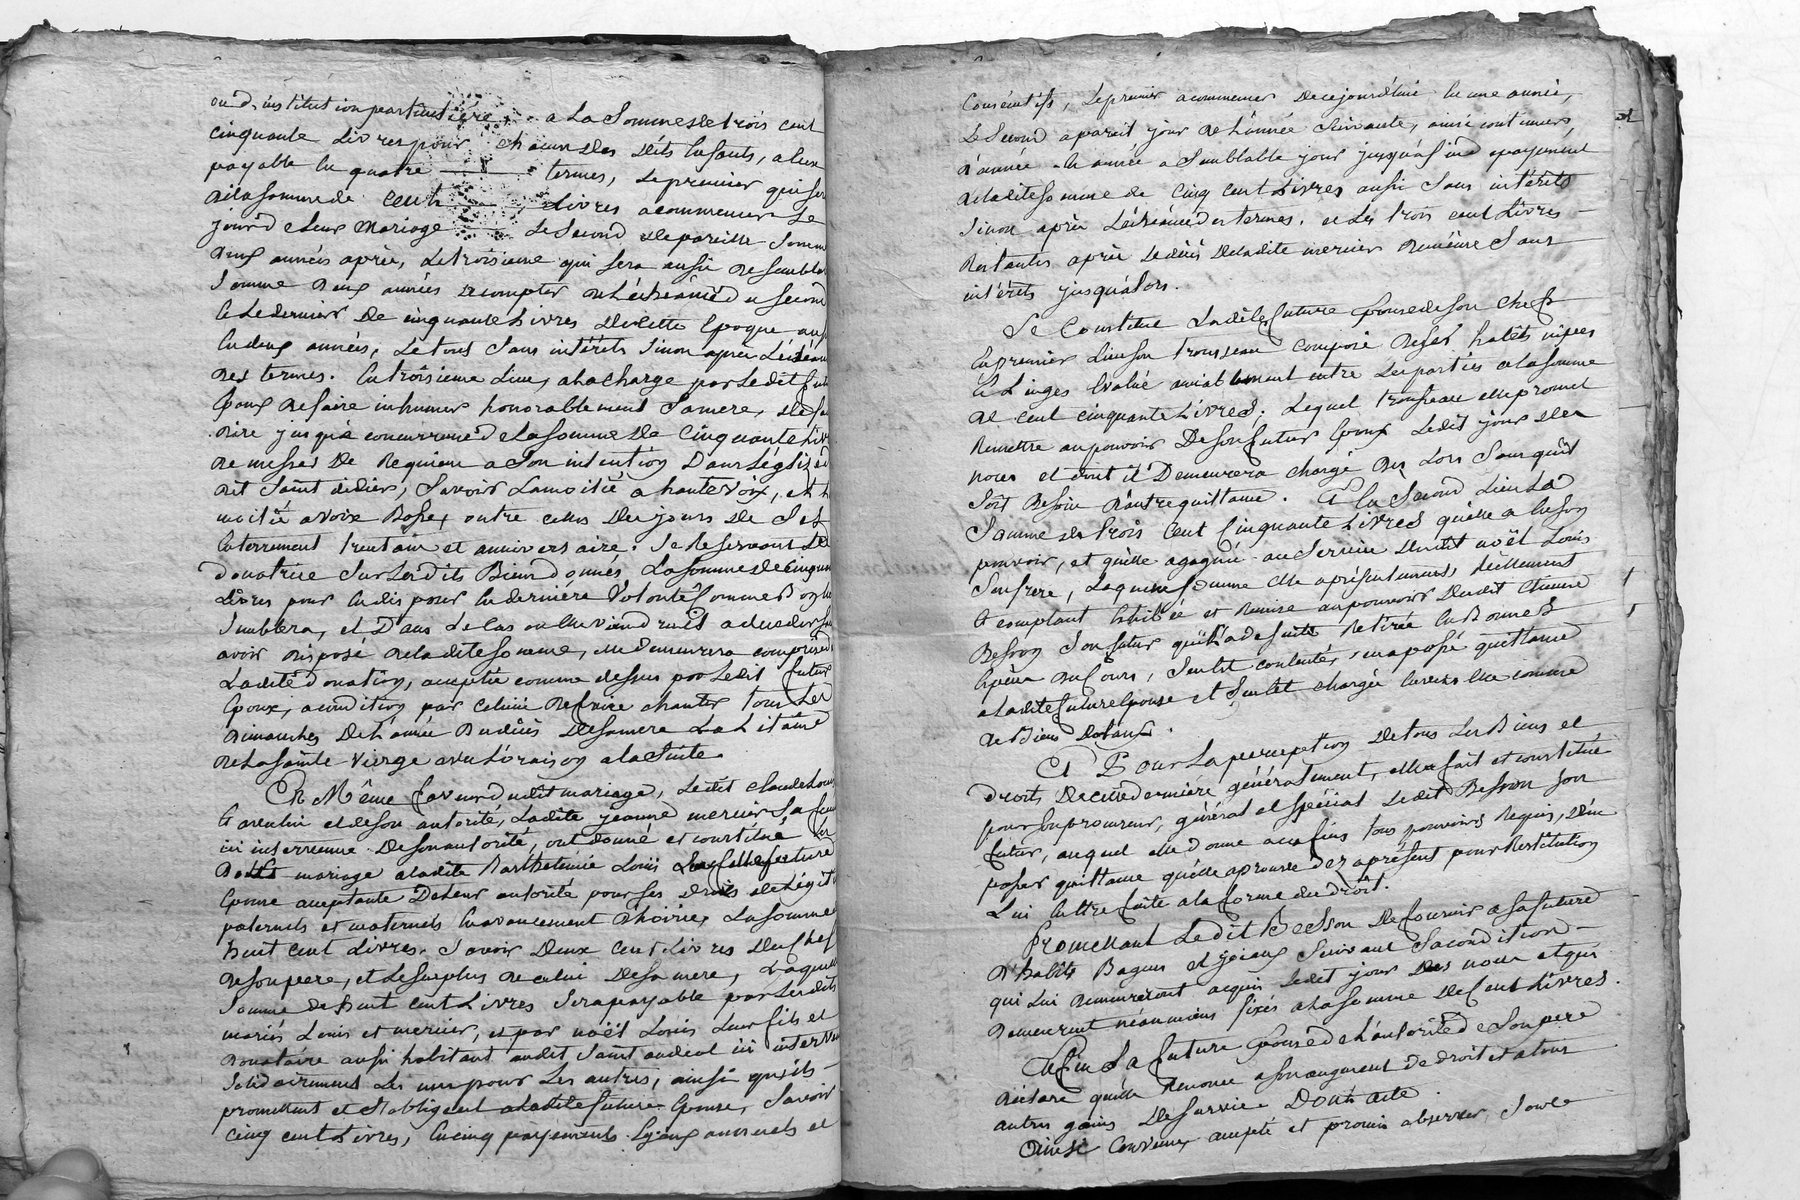 ou d'institution particulière, a la Somme de trois cent
cinquante Livres pour chacun des dits Enfants, a Eux
payable En quatre termes, Le premier qui sera
de la somme de cent Livres a commencer Le
jour de Leur Mariage Le Second de pareille Somme
deux années après, Le troisieme qui sera aussi de semblable
Somme deux années a compter de L'echéance du second
Et Le dernier de cinquante Livres de cette Epoque aussi
En deux années, Le tout Sans intérêts Sinon après L'échéance
des termes. En troisieme Lieu, a la charge par Le dit futur
Epoux de faire inhumer honorablement Sa mere, de faire
dire jusqu'a concurrence de la somme de Cinquante Livres
de messes de Requiem a Son intention Dans L'église du
dit Saint didier, Savoir La moitié a haute voix, et la
moitié a voix Basse, outre celles des jours de Ses
Enterrement trentain et anniversaire. Se Reservant La
donatrice Sur Les dits Biens donnés La somme de cinquante
Livres pour En disposer En derniere Volonté comme Bon lui
Semblera, et Dans Le Cas ou Elle viendrait a deceder sans
avoir disposé de la dite somme, Elle demeurera comprise En
La dite donation, acceptée comme dessus par Le dit futur
Epoux, a condition par celui-ci de faire chanter tous Les
dimanches de L'année du décès de Sa mere La Litanie
de La sainte Vierge avec L'oraison a la Suite.
En Même faveur du dit mariage, Le dit claude Louis
Et de son autorité, La dite jeanne mercier Sa femme
ici intervenue de son autorité, ont donné et constitué En
Dot mariage a la dite Barthelemie Louis Leur fille future
Epouse acceptante De Leur autorité pour ses Droits de Légitime
paternels et maternels En avancement d'hoirie, La somme de
huit cent Livres. Savoir Deux Cent Livres du chef
de son pere, et Le surplus de celui de Sa mere, Laquelle
Somme de huit cent Livres Sera payable par Les dits
mariés Louis et mercier, et par noël Louis Leur fils et
donataire aussi habitant au dit Saint andeol ici intervenu
Solidairement Les uns pour Les autres, ainsi qu'ils
promettent et S'obligent a la dite future Epouse, Savoir
cinq cent Livres, En cinq payements Egaux annuels et
Consecutifs, Le premier a commencer de ce jourd'hui En une année,
Le Second a pareil jour de L'année Suivante, ainsi continuer
d'année En année a Semblable jour jusqu'a fin de payement
de la dite somme de Cinq cent Livres aussi Sans intérêts
Sinon après L'échéance des termes. et Les trois cent Livres
Restantes après Le décès de la dite mercier de même Sans
intérêts jusqu'alors.
Se Constitue La dite future Epouse de son Chef
En premier Lieu son trousseau composé de ses habits nipes
Et Linges Evalué amiablement entre Les parties a la somme
de cent cinquante Livres, Lequel trousseau Elle promet
Remettre au pouvoir De son futur Epoux Le dit jour des
noces et dont il Demeurera chargé dès Lors Sans qu'il
Soit Besoin d'autre quittance. Et En Second Lieu La
Somme de trois Cent Cinquante Livres qu'elle a En son
pouvoir, et qu'elle a gagnée au Service du dit noël Louis
Son frere, Laquelle somme Elle a présentement, réellement
Et comptant Exhibée et Remise au pouvoir du dit Etienne
Besson Son futur qui L'a de suite Retirée En Bonnes
Espèces du Cours, S'en Est contenté, En a passé quittance
a la dite future Epouse et S'en Est chargée Envers Elle comme
de Biens Dotaux.
Et Pour La perception de tous Les Biens et
droits De cette derniére généralement, Elle a fait et constitué
pour Son procureur, général et spécial Le dit Besson Son
futur, auquel Elle donne aux fins tous pouvoirs Requis, d'En
passer quittance qu'elle aprouve dès a présent pour Restitution
Lui En Etre faite a la forme du droit.
Promettant Le dit Besson De fournir a Sa future
d'habits Bagues et joyaux Suivant Sa condition
qui Lui demeureront acquis Le dit jour des noces et qui
Demeurent néanmoins fixés a la Somme de Cent Livres.
Enfin La future Epouse de L'autorité de Son pere
déclare qu'elle Renonce a Son augment de droit et a tous
autres gains de Survie. Dont acte
Ainsi Convenu, accepté et promis observer Sous